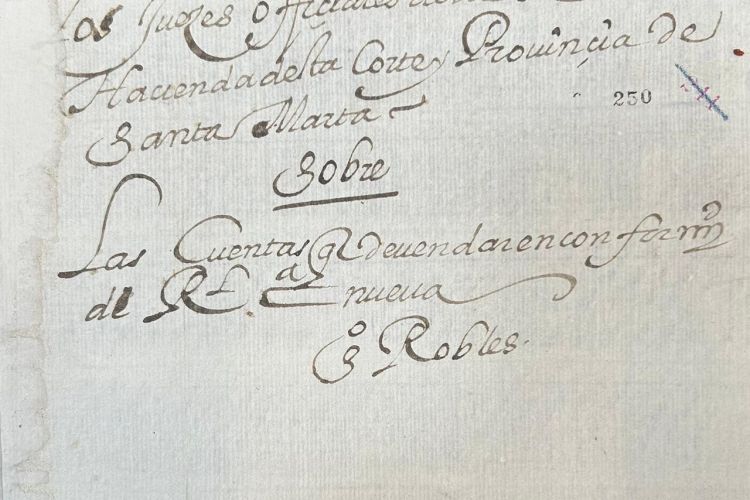 los Juezes Offiçiales
Haciendadesta Corte y Provinçia de
Santa Marta
250
Sobre
Las Cuentas q devendarenconformd
de Rl. ca nueva
So Robles.